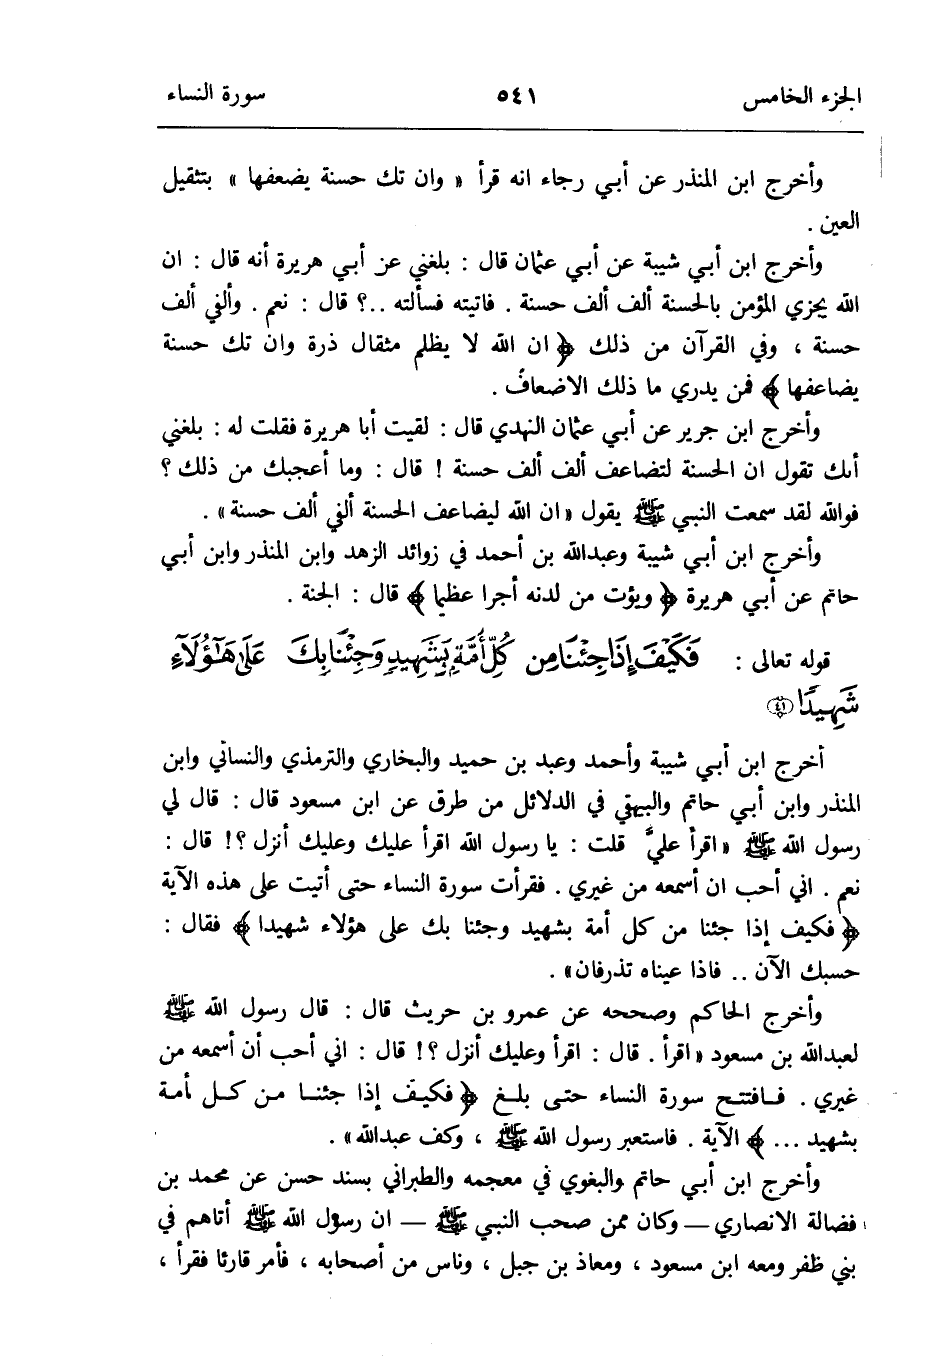 الجزء الخامس ٥٤١ سورة النساء
وأخرج ابن المنذر عن أبي رجاء انه قرأ « وان تك حسنة يضعفها » بتثقيل
العين .
وأخرج ابن أبي شيبة عن أبي عثمان قال : بلغني عن أبي هريرة أنه قال : ان
الله يجزي المؤمن بالحسنة ألف ألف حسنة . فاتيته فسألته ..؟ قال : نعم . وألفي ألف
حسنة ، وفي القرآن من ذلك ﴿ ان الله لا يظلم مثقال ذرة وان تك حسنة
يضاعفها ﴾ فمن يدري ما ذلك الاضعاف .
وأخرج ابن جرير عن أبي عثمان النهدي قال : لقيت أبا هريرة فقلت له : بلغني
أنك تقول ان الحسنة لتضاعف ألف ألف حسنة ! قال : وما أعجبك من ذلك ؟
فوالله لقد سمعت النبي ﷺ يقول « ان الله ليضاعف الحسنة ألفي ألف حسنة » .
وأخرج ابن أبي شيبة وعبدالله بن أحمد في زوائد الزهد وابن المنذر وابن أبي
حاتم عن أبي هريرة ﴿ ويؤت من لدنه أجرا عظيما ﴾ قال : الجنة .
قوله تعالى : فَكَيْفَ إِذَا جِئْنَا مِن كُلِّ أُمَّةٍ بِشَهِيدٍ وَجِئْنَا بِكَ عَلَىٰ هَٰٓؤُلَآءِ
شَهِيدًا ٤١
أخرج ابن أبي شيبة وأحمد وعبد بن حميد والبخاري والترمذي والنسائي وابن
المنذر وابن أبي حاتم والبيهقي في الدلائل من طرق عن ابن مسعود قال : قال لي
رسول الله ﷺ « اقرأ عليَّ قلت : يا رسول الله اقرأ عليك وعليك أنزل ؟! قال :
نعم . اني أحب ان أسمعه من غيري . فقرأت سورة النساء حتى أتيت على هذه الآية
﴿ فكيف إذا جئنا من كل أمة بشهيد وجئنا بك على هؤلاء شهيدا ﴾ فقال :
حسبك الآن .. فاذا عيناه تذرفان » .
وأخرج الحاكم وصححه عن عمرو بن حريث قال : قال رسول الله ﷺ
لعبدالله بن مسعود « اقرأ . قال : اقرأ وعليك أنزل ؟! قال : اني أحب أن أسمعه من
غيري . فافتتح سورة النساء حتى بلغ ﴿ فكيف إذا جئنا من كل أمة
بشهيد ... ﴾ الآية . فاستعبر رسول الله ﷺ ، وكف عبدالله » .
وأخرج ابن أبي حاتم والبغوي في معجمه والطبراني بسند حسن عن محمد بن
فضالة الانصاري — وكان ممن صحب النبي ﷺ — ان رسول الله ﷺ أتاهم في
بني ظفر ومعه ابن مسعود ، ومعاذ بن جبل ، وناس من أصحابه ، فأمر قارئا فقرأ ،